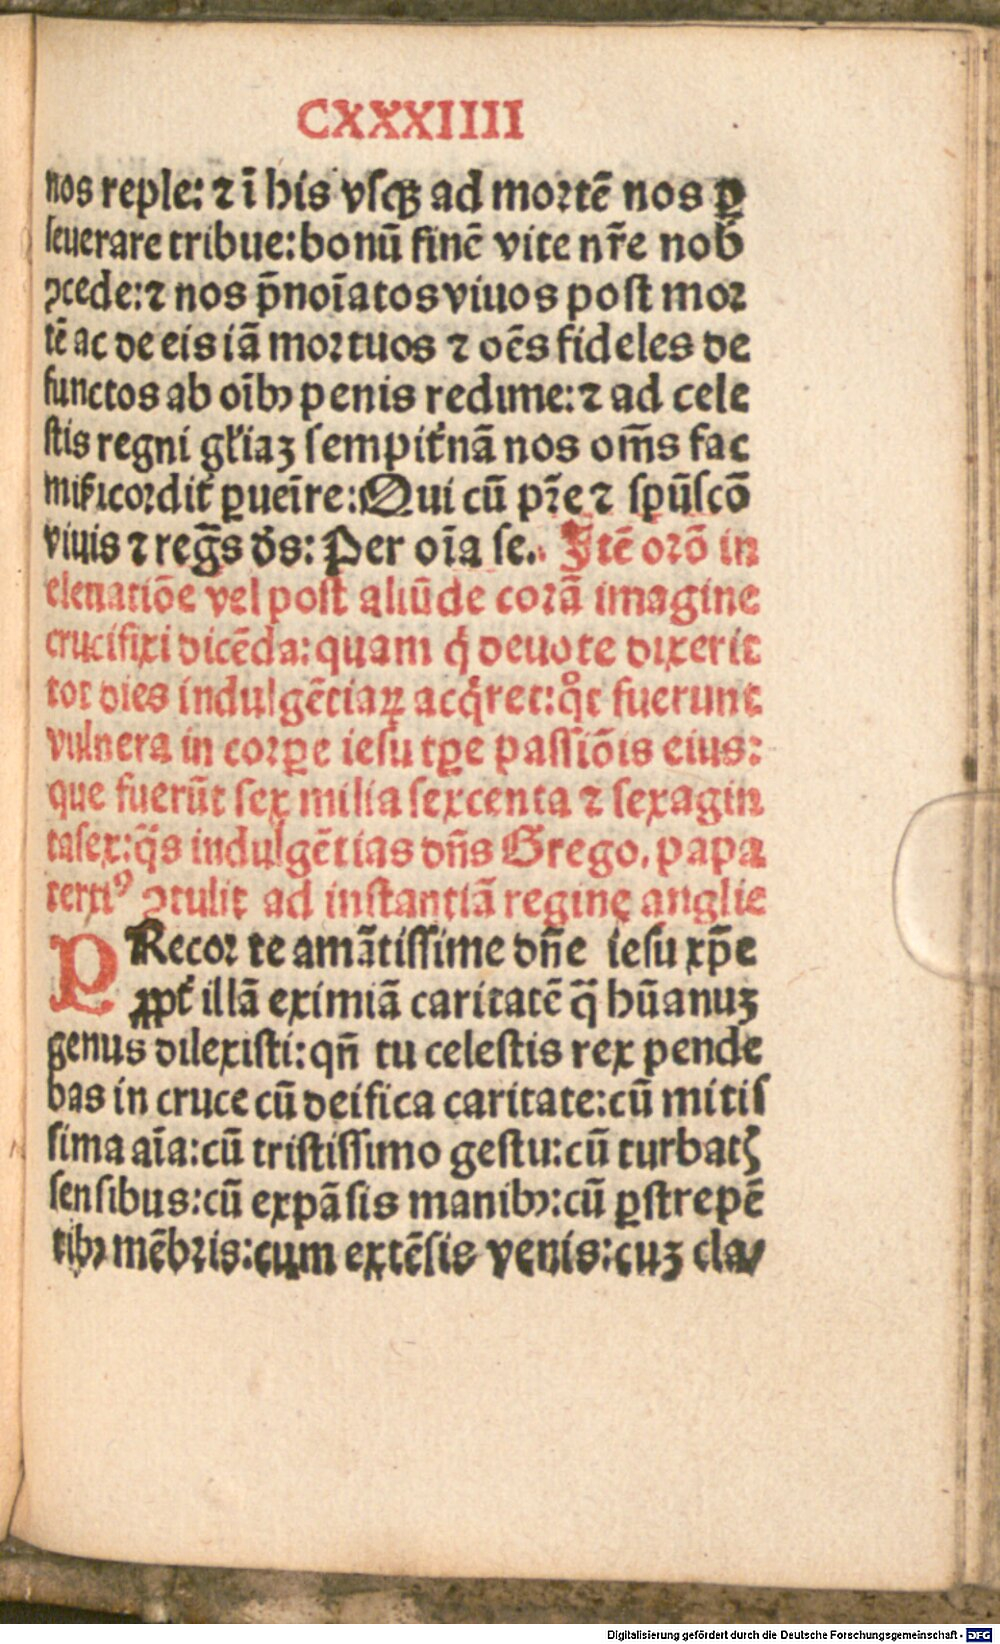 CXXXIIII
nos reple: ⁊ ī his vſqꝫ ad moꝛtē nos ꝑ
ſeuerare tribue: bonū finē vite nr̄e nob̄
ꝯcede: ⁊ nos p̄noīatos viuos poſt moꝛ
tē ac de eis iā moꝛtuos ⁊ oēs fideles de
functos ab oībꝰ penis redime: ⁊ ad cele
ſtis regni gl̄iaꝫ ſempit̄nā nos om̄s fac
miſ̄icoꝛdit̄ ꝑueīre: Qui cū pr̄e ⁊ ſpūſcō
viuis ⁊ reḡs ds̄: Per oīa ſe. Itē oꝛō in
eleuatiōe vel poſt aliūde coꝛā imagine
crucifixi dicēda: quam q̇ deuote dixerit
tot dies indulgētiaꝝ acq̇ret: qͦt fuerunt
vulnera in coꝛꝑe ieſu tꝑe paſſiōis eius:
que fuerūt ſex milia ſexcenta ⁊ ſexagin
taſex: q̄s indulgētias dn̄s Grego. papa
tertiꝰ ꝯtulit ad inſtantiā reginę anglie
PRecoꝛ te amātiſſime dn̄e ieſu xp̄e
ꝓpt̄ illā eximiā caritatē q̄ hūanuꝫ
genus dilexiſti: qn̄ tu celeſtis rex pende
bas in cruce cū deifica caritate: cū mitiſ
ſima aīa: cū triſtiſſimo geſtu: cū turbatꝭ
ſenſibus: cū expāſis manibꝰ: cū ꝑſtrepē
tibꝰ mēbꝛis: cum extēſis venis: cuꝫ cla⸗
Digitalisierung gefördert durch die Deutsche Forschungsgemeinschaft - DFG